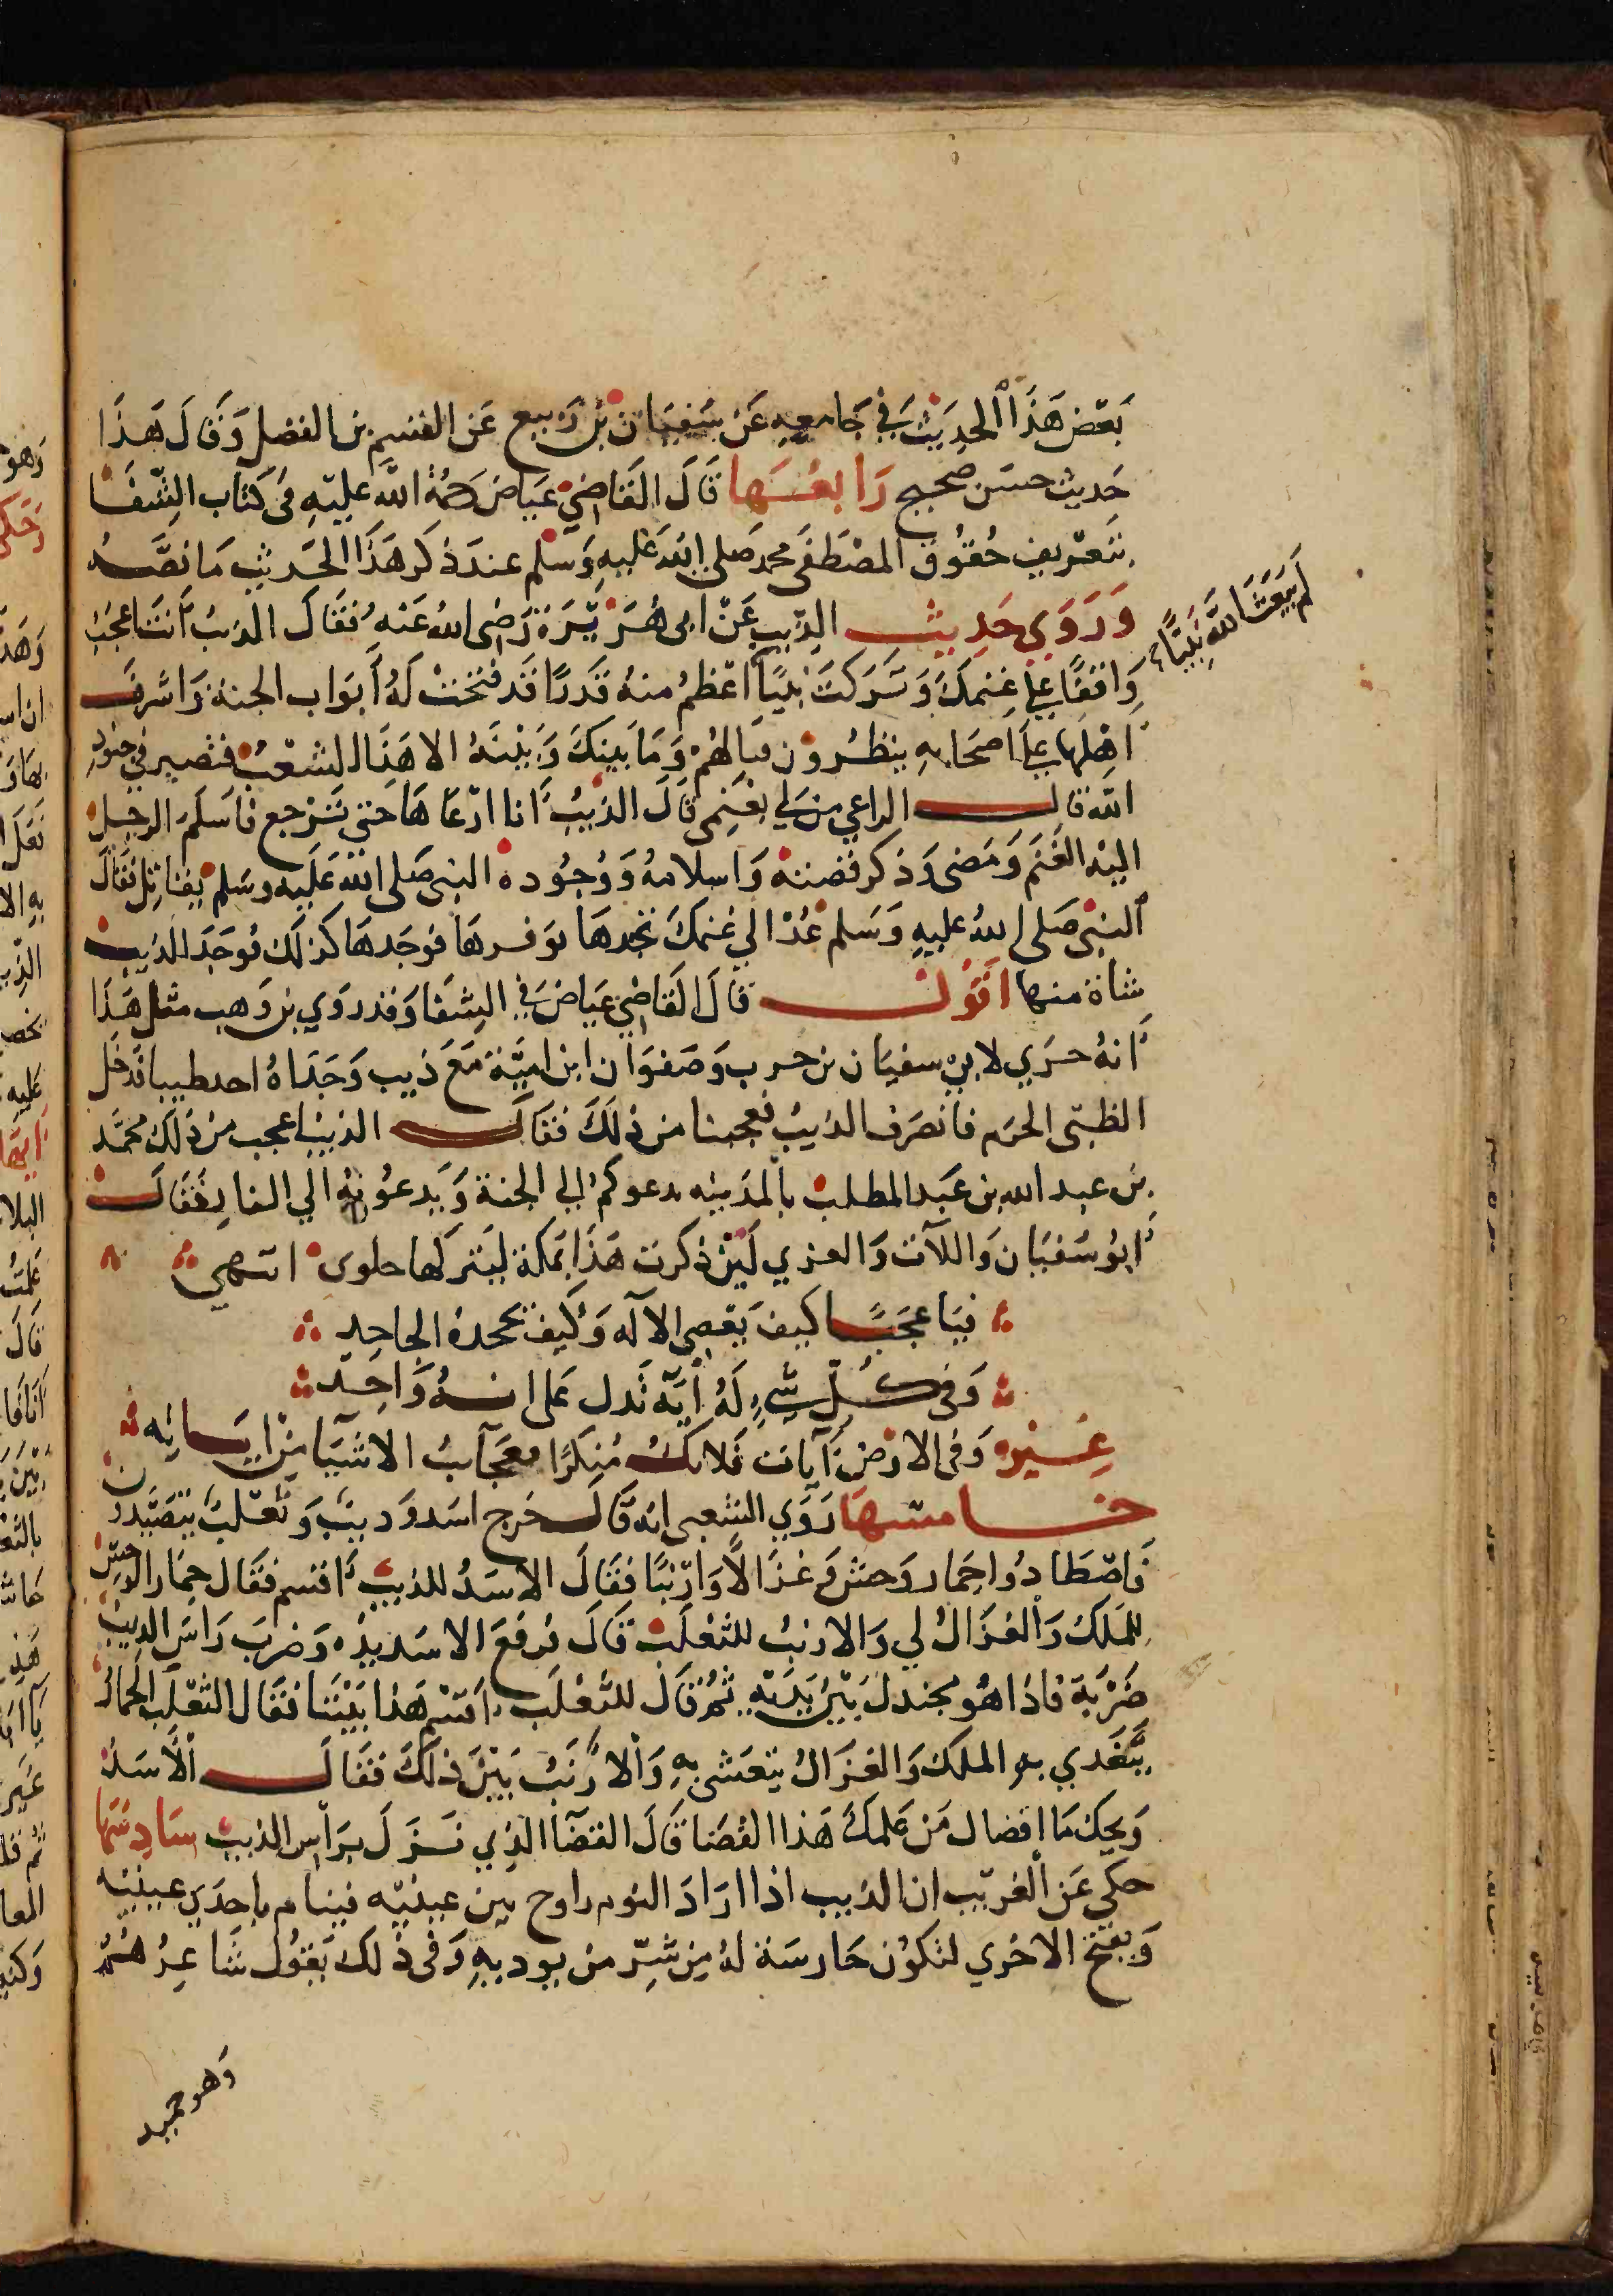 بَعْض هَذَا الحَدِيْث فِي جَامعهِ عَن سَفيَان بْن رَبيع عَن القسم بن الفضل وَقَالَ هَذَا
حَديث حسَن صحيح رَابعُهَا قَالَ القَاضِيْ عيَاض رَحمَةُ اللَّه عليْهِ في كتَاب الشفَا
بتَعريف حُقُوق المصْطَفى محمد صَلى الله عَليهِ وَسلم عندَ ذكر هَذَا الحَديث مَا نصَّه
وَرَوَى حَديث الذيب عَنْ ابى هُرَيْرَة رَضى الله عَنْهُ فقَالَ الذيبُ أنتَ اعجَب
لم يَبعَث اللَّه نَبيًّا
وَاقفًا علي غنمكَ وَتَركتَ نبيًا اعْظمُ منهُ قَدرًا قَد فتحَتْ لَهُ أبوَاب الجنة وَاشرفَ
اهْلها علَى اصحَابهِ ينظرُون قتالهُمْ وَمَا بينكَ وَبيْنَهُ الا هَذَا الشعْب فتصير في جنودِ
اللّه قال الراعي من لي بغَنمى قَالَ الذيبُ انا ارْعَاهَا حتى تَرْجع فاسَلَمَ الرجل
اليْه الغَنَم وَمَضى وَذكر قصتهُ وَاسلامهُ وَوُجُوده النبى صَلى الله عَليه وسَلم يقَاتل فقَالَ
النبْى صَلى الله عليهِ وَسَلم عُدْ الي غنمكَ تجدهَا بوَفرهَا فوَجَدهَا كذلكَ فوجَدَ الذيب
شاة منها اقول قَالَ القَاضِي عيَاض في الشفَا وَقد روَي بن وَهب مثل هَذَا
انهُ جرَي لابي سفيَان بن حرب وَصَفوَان ابن اميَّة مَعَ ذيب وَجَدَاهُ احد ظبيا فدَخل
الظبْى الحرَم فانصَرَف الذيبُ فعجبَا من ذلكَ فقَال الذيب اعجب منْ ذلكَ محمَّد
بن عبد الله بن عَبد المطلب بالمدَينه يدعوكمْ الى الجنة وَيَدعُونهُ الي النار فقَال
ابوُ سَفيَان وَاللآت وَالعزي لَئِنْ ذكرتَ هَذَا بمَكة ليَتركها حلوى انتهى
فيَا عجَبًا كيف يَعْصي الالَه وَكَيف يجحدهُ الجاحِد
وَفي كُلِ شيءٍ لَهُ أيَة تَدل عَلى انهُ وَاحِد
غَيره وَفي الارْض آيات فَلا تكُ مُنكرًا فعَجَآئبُ الاشيَا مِنْ ايَاته
خامسهَا رَوَي الشعبى انه قَالَ خَرج اسَد وَديب وَثعْلب يتصَيَّدون
فَاصْطَادُوا حِمَار وَحش وَغزَالاً وَارْنبًا فقَالَ الاسَدُ للذيبِ اقسم فقَال حِمَار الوَحش
للمَلك وَالغزَالُ لي وَالارنبُ للثعْلَب قَالَ فرفعَ الاسَد يَدهُ وَضرَبَ رَاسَ الذيب
ضَرْبَة فاذا هُو مجندل بَيْن يَديْهِ ثمُ قَال للثعْلَب اقسْم هَذا بَيْننا فقَال الثعْلَب الحمَارُ
يتَغَدي بهِ الملكَ وَالغزَالُ يتعَشى بهِ وَالارْنَبُ بَيْنَ ذلكَ فقَال الاَسَدُ
وَيحكَ مَا اقضاك مَن عَلمكَ هَذا القضَا قَالَ القَضَاَ الذِي نَزَلَ برَاْسِ الذيب سَادِسَهَا
حكي عَن الغرّيب ان الذيب اذا ارَادَ النوم راوح بين عينيْه فينام باحدَي عينيْه
وَيفتح الاخري لتكوُن حَارسَة لهُ مِن شرّ من يوديهِ وَفي ذلك يَقُول شَاعرهُم
وَهو حميد